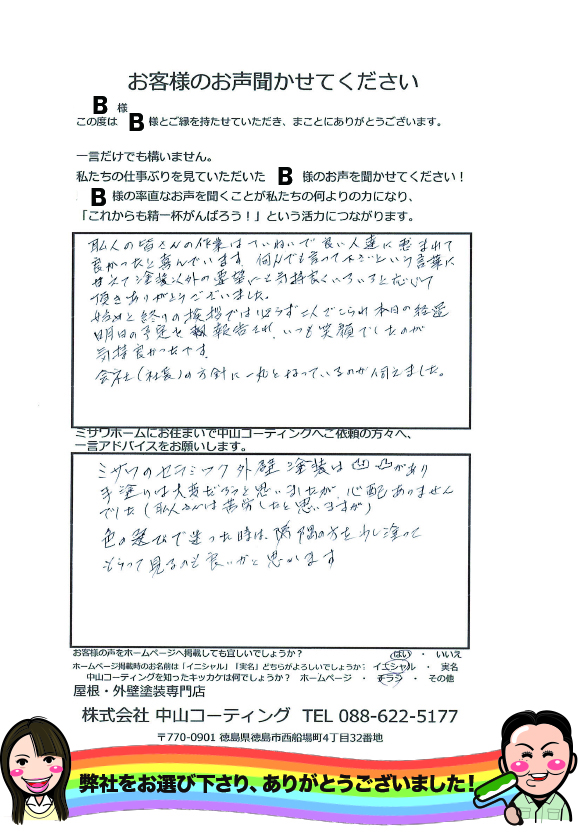 お客様のお声聞かせてください
B 様
この度は B 様とご縁を持たせていただき、まことにありがとうございます。
一言だけでも構いません。
私たちの仕事ぶりを見ていただいた B 様のお声を聞かせてください！
B 様の率直なお声を聞くことが私たちの何よりの力になり、
「これからも精一杯がんばろう！」という活力につながります。
職人の皆さんの作業はていねいで良い人達に恵まれて
良かったと喜んでいます 何んでも言って下さいという言葉に
甘えて塗装以外の要望にも気持良くいろいろと応じて
頂きありがとうございました。
始めと終りの挨拶では必らず二人でこられ本日の経過
明日の予定を報告され、いつも笑顔でしたのが
気持良かったです。
会社(社長)の方針に一丸となっているのが伺えました。
ミサワホームにお住まいで中山コーティングへご依頼の方々へ、
一言アドバイスをお願いします。
ミサワのセラミック外壁塗装は凹凸があり
手塗りは大変だろうと思いましたが、心配ありません
でした(職人さんは苦労したと思いますが)
色の選びで迷った時は、隅の方を少し塗って
もらって見るのも良いかと思います
お客様の声をホームページへ掲載しても宜しいでしょうか？ はい ・ いいえ
ホームページ掲載時のお名前は「イニシャル」「実名」どちらがよろしいでしょうか？ イニシャル ・ 実名
中山コーティングを知ったキッカケは何でしょうか？ ホームページ ・ チラシ ・ その他
屋根・外壁塗装専門店
株式会社 中山コーティング TEL 088-622-5177
〒770-0901 徳島県徳島市西船場町4丁目32番地
弊社をお選び下さり、ありがとうございました！